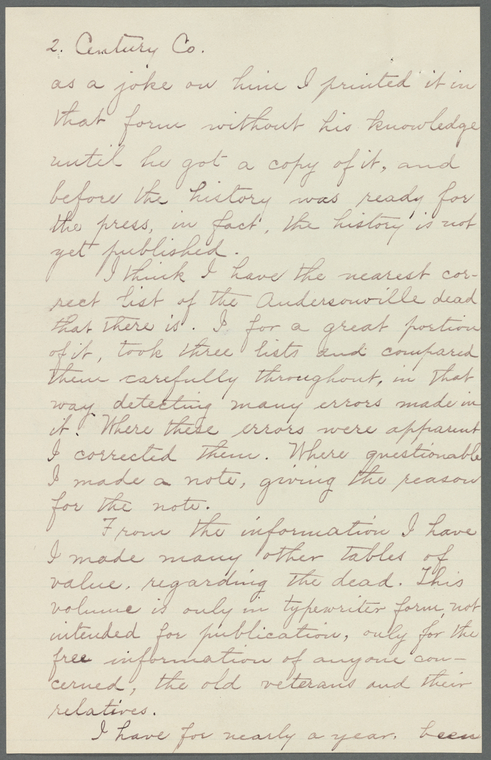 2. Century Co.
as a joke on him I printed it in
that form without his knowledge
until he got a copy of it, and
before the history was ready for
the press, in fact, the history is not
yet published.
I think I have the nearest cor-
rect list of the Andersonville dead
that there is. I for a great portion
of it, took three lists and compared
them carefully throughout, in that
way detecting many errors made in
it. Where these errors were apparent
I corrected them. Where questionable
I made a note, giving the reason
for the note.
From the information I have
I made many other tables of
value, regarding the dead. This
volume is only in typewriter form, not
intended for publication, only for the
free information of anyone con-
cerned, the old veterans and their
relatives.
I have for nearly a year, been